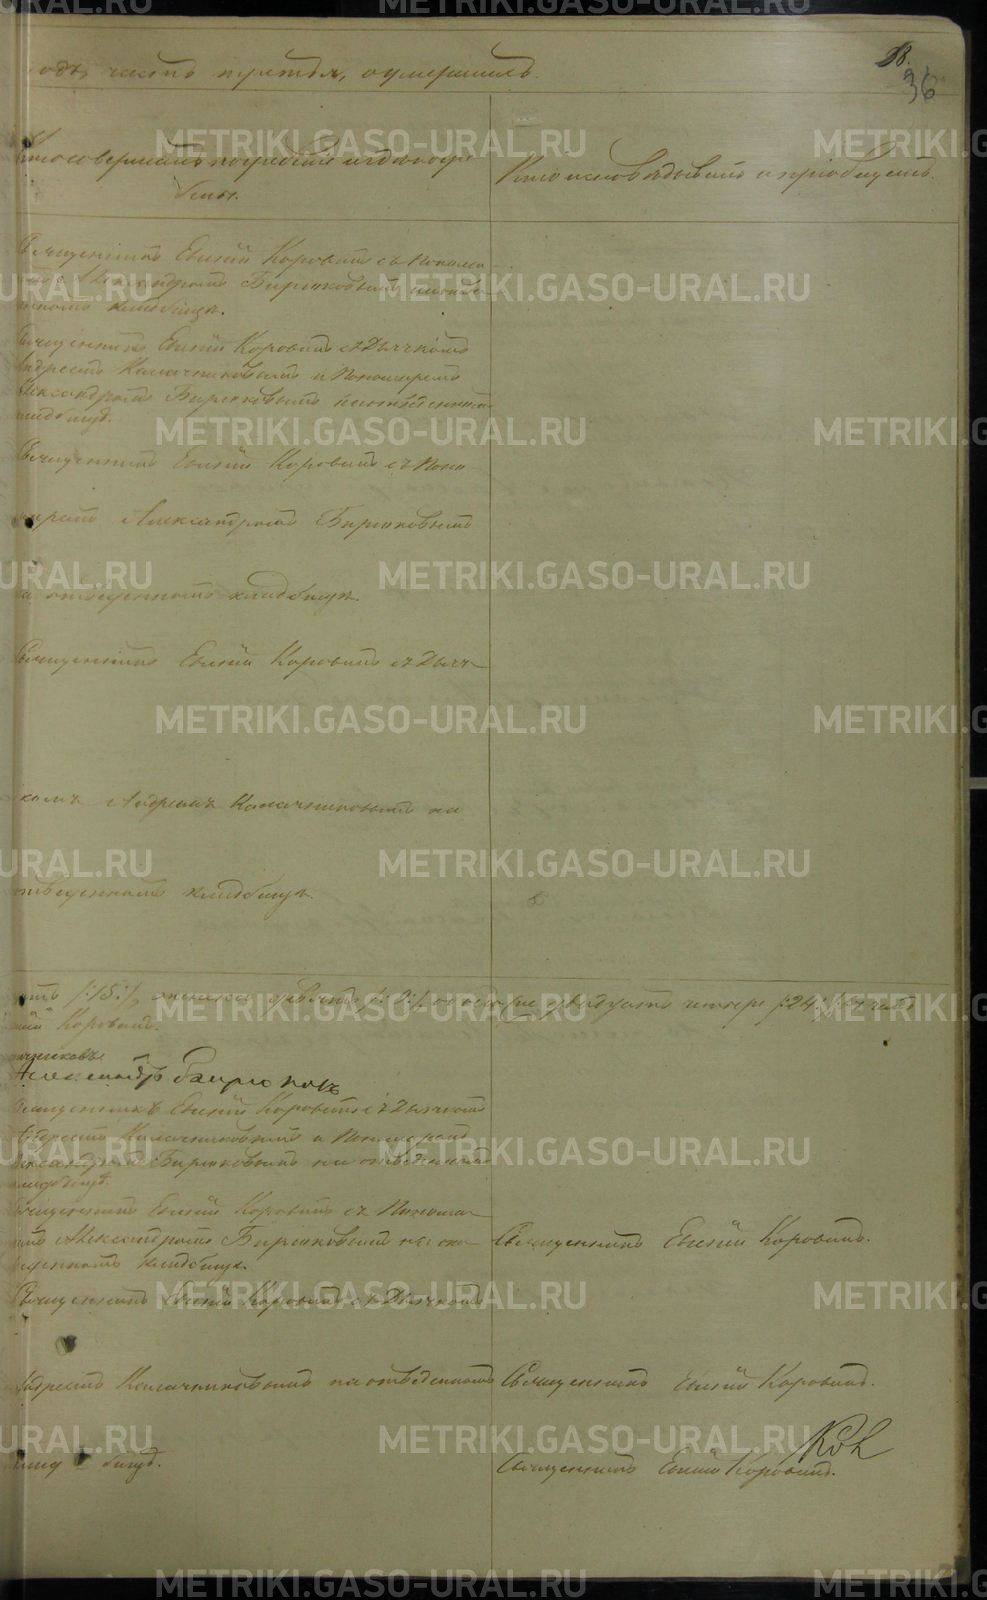 годъ, часть третья, о умершихъ.
36
Кто совершалъ погребеніе и гдѣ погре-
бены.
Кто исповѣдывалъ и пріобщалъ.
Священникъ Евгеній Коровинъ съ Понома-
ремъ Александромъ Бирюковымъ на отве-
денномъ кладбищѣ.
Священникъ Евгеній Коровинъ съ Дьячкомъ
Андреемъ Калачниковымъ и Пономаремъ
Александромъ Бирюковымъ на отведенномъ
кладбищѣ.
Священникъ Евгеній Коровинъ съ Поно-
маремъ Александромъ Бирюковымъ
на отведенномъ кладбищѣ.
Священникъ Евгеній Коровинъ съ Дьяч-
комъ Андреемъ Калачниковымъ на
отведенномъ кладбищѣ.
/:15:/, женска девять /:9:/, обоего двадцать четыре /:24:/
Коровинъ.
Александръ Бирюковъ
Священникъ Евгеній Коровинъ съ Дьячкомъ
Андреемъ Калачниковымъ и Пономаремъ
Александромъ Бирюковымъ на отведенномъ
кладбищѣ.
Священникъ Евгеній Коровинъ съ Понома-
ремъ Александромъ Бирюковымъ на отве-
денномъ кладбищѣ.
Священникъ Евгеній Коровинъ.
Священникъ Евгеній Коровинъ съ Дьячкомъ
Андреемъ Калачниковымъ на отведенномъ
Священникъ Евгеній Коровинъ.
кладбищѣ.
Священникъ Евгеній Коровинъ.
METRIKI.GASO-URAL.RU